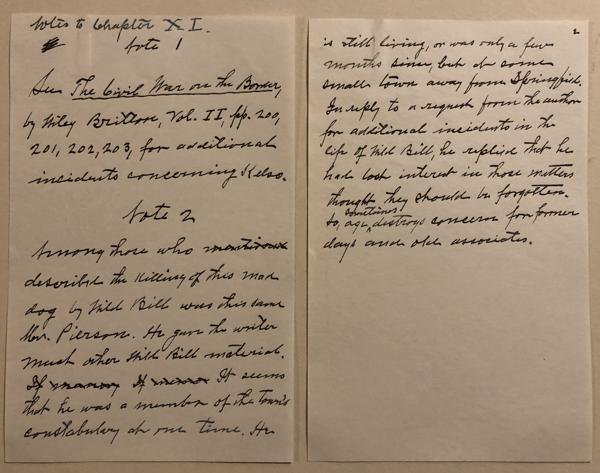 Notes to Chapter XI.
Note 1
See The Civil War on the Border,
by Wiley Britton, Vol. II, pp. 200,
201, 202, 203, for additional
incidents concerning Kelso.
Note 2
Among those who mentioned
described the killing of this mad
dog by Wild Bill was this same
Mr. Pierson. He gave the writer
much other Wild Bill material.
If memory If It seems
that he was a member of the town's
constabulary at one time. He
2
is still living, or was only a few
months since, but at some
small town away from Springfield.
In reply to a request from the author
for additional incidents in the
life of Wild Bill, he replied that he
had lost interest in those matters
thought they should be forgotten.
so, age, sometimes destroys concern for former
days and old associates.